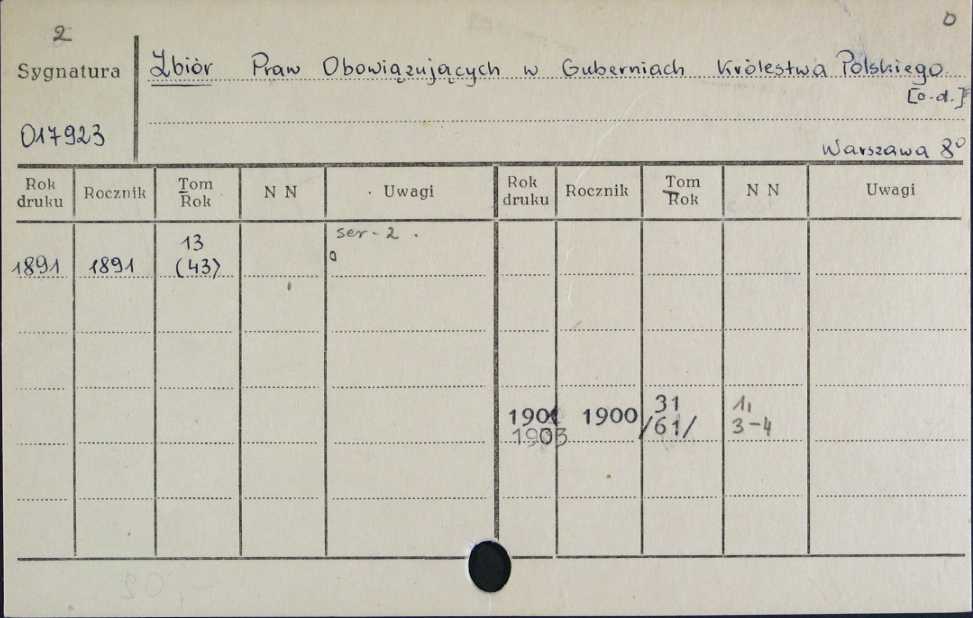 2
0
Sygnatura
Zbiór Praw Obowiązujących w Guberniach Królestwa Polskiego
[o.d.]
017923
Warszawa 8°
Rok druku Rocznik Tom Rok N N Uwagi Rok druku Rocznik Tom Rok N N Uwagi
13 ser-2.
1891 1891 (43) 0
31 1,
1901 1900 /61/ 3-4
1903